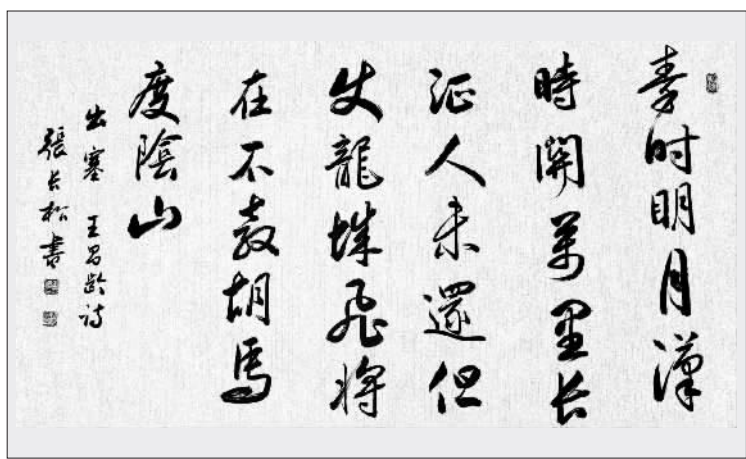 秦时明月漢
時關萬里长
征人未還但
使龍城飛将
在不教胡馬
度陰山
出塞 王昌齡詩
張长松書